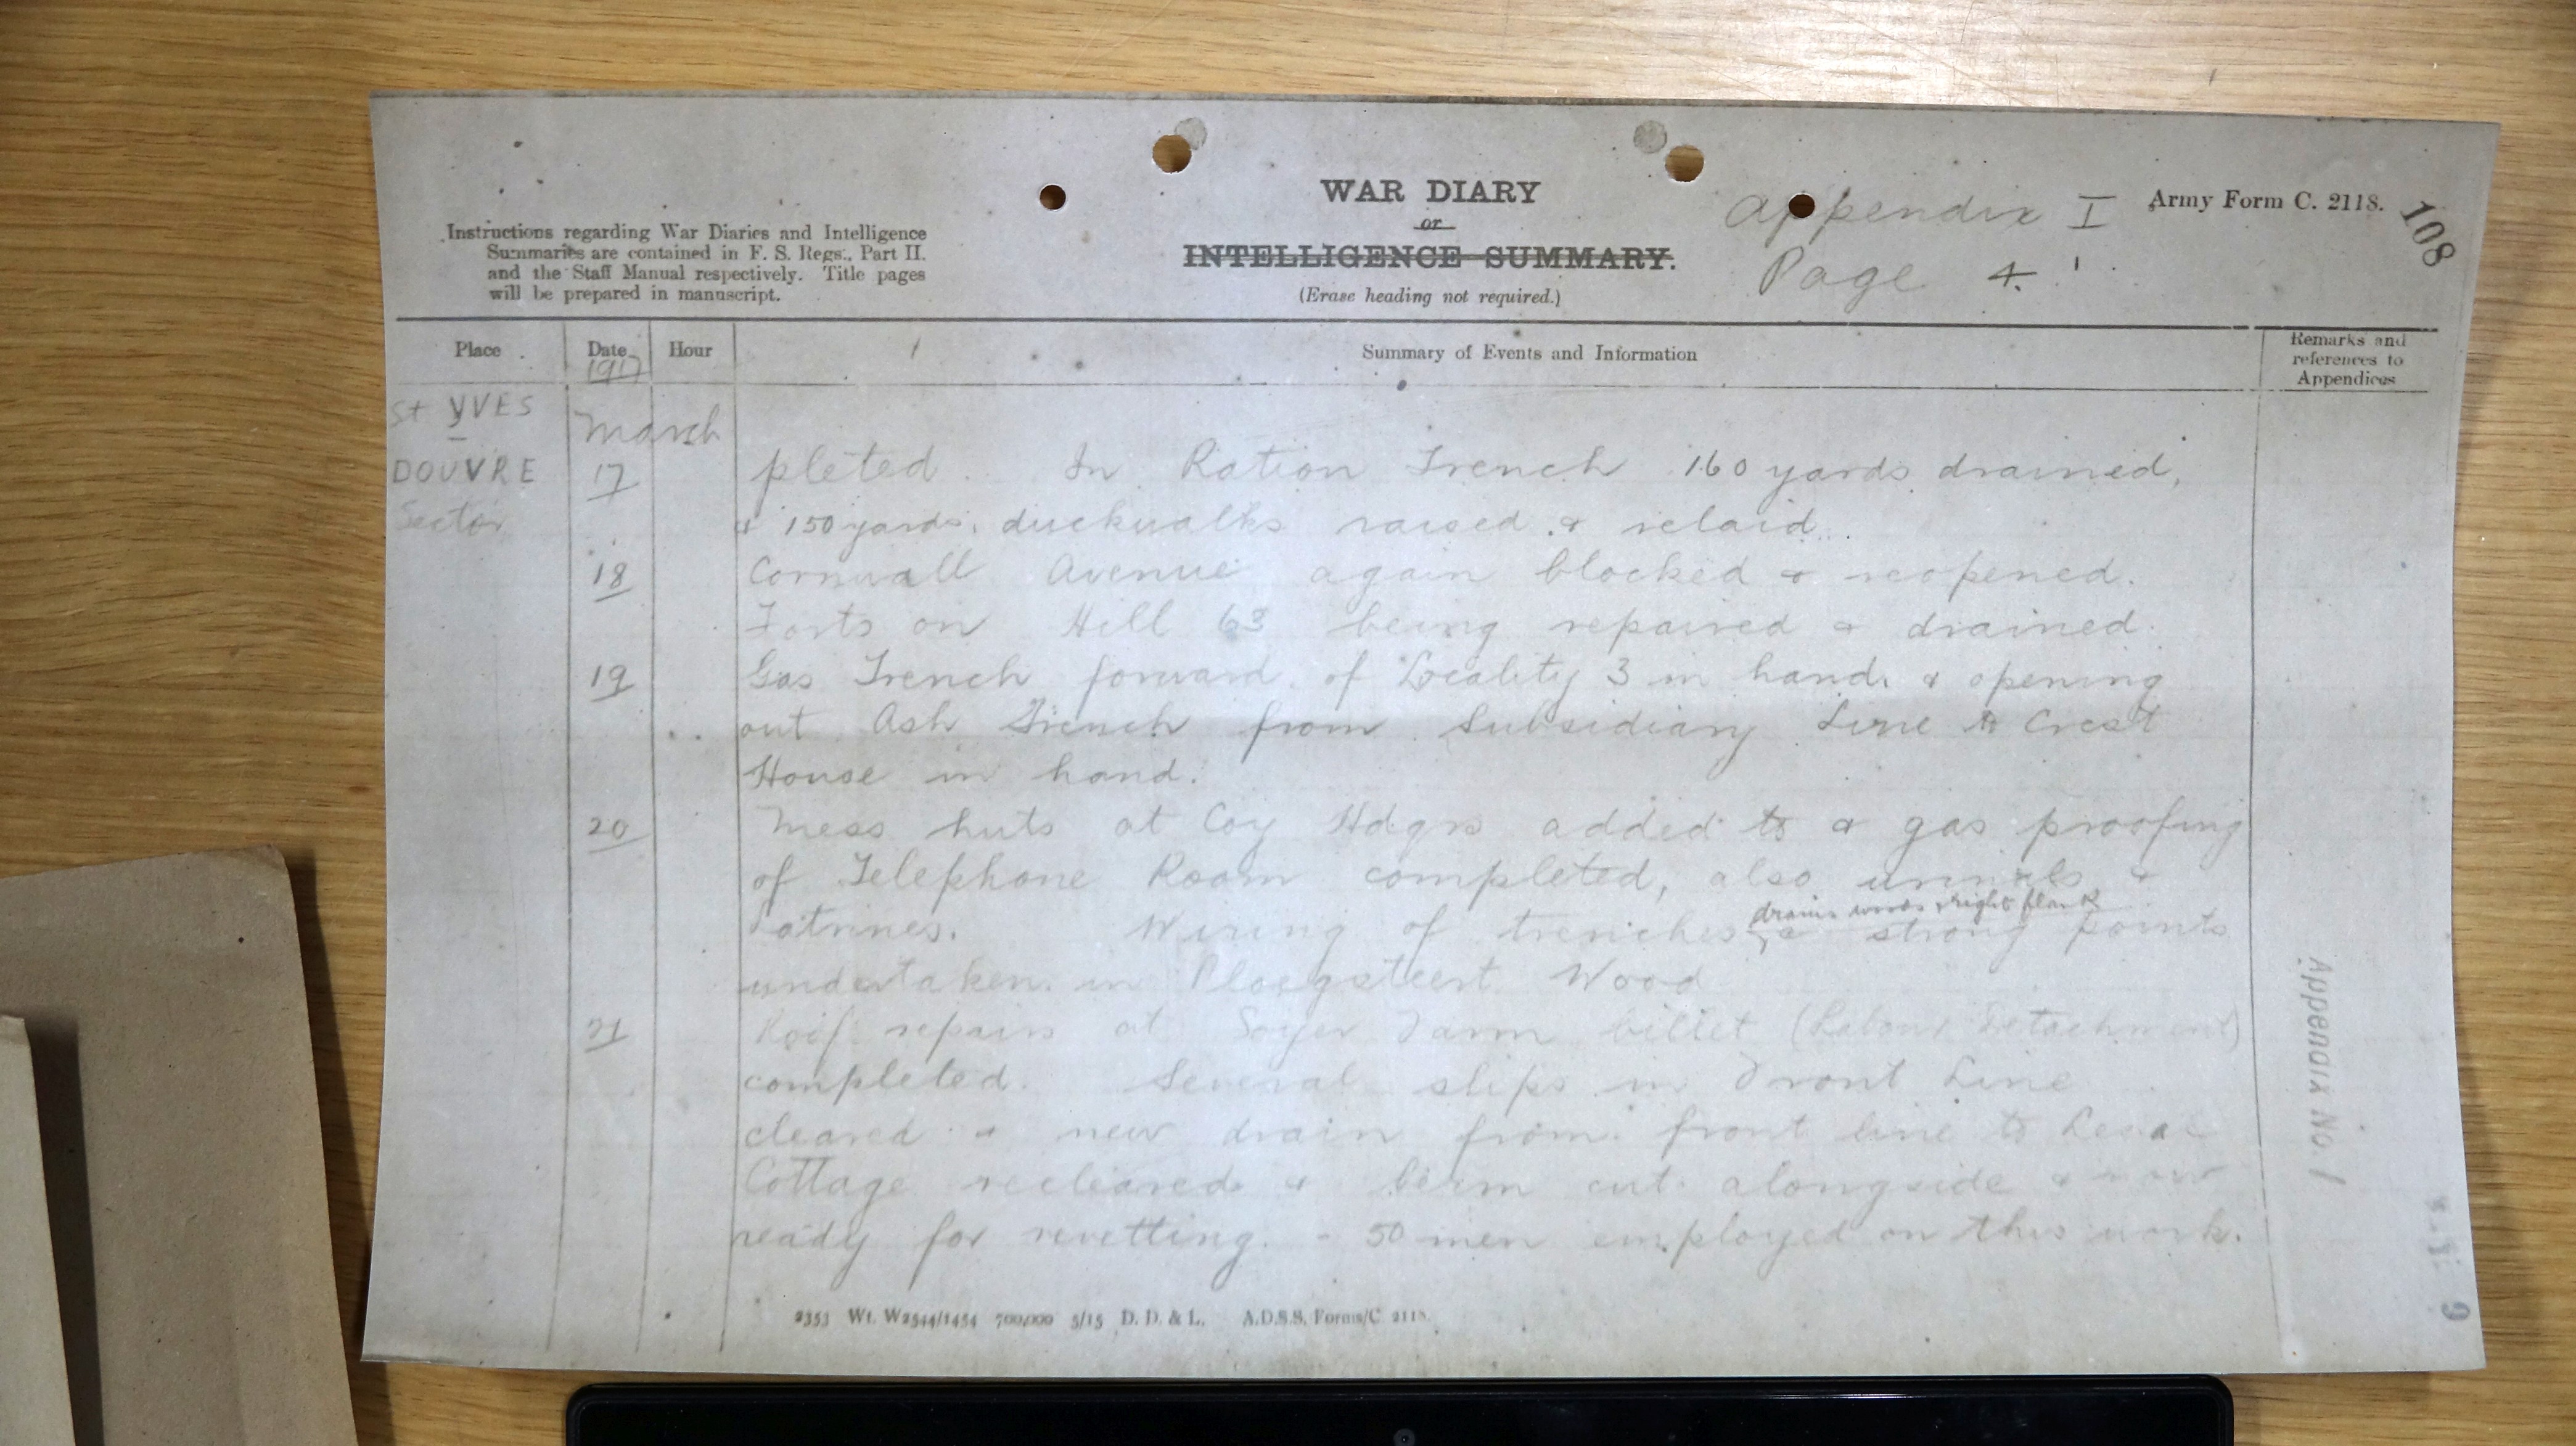 WAR DIARY
or
INTELLIGENCE SUMMARY.
(Erase heading not required.)
Instructions regarding War Diaries and Intelligence
Summaries are contained in F. S. Regs., Part II.
and the Staff Manual respectively. Title pages
will be prepared in manuscript.
Appendix I
Page 4.
Army Form C. 2118.
108
Place
Date
1917
Hour
Summary of Events and Information
Remarks and
references to
Appendices
St YVES
–
DOUVRE
Sector
March
17
pleted. In Ration Trench 160 yards drained,
& 150 yards duckwalks raised & relaid.
18
Cornwall Avenue again blocked & reopened.
Forts on Hill 63 being repaired & drained.
19
Gas Trench forward of Locality 3 in hand & opening
out Ash Trench from Subsidiary Line to Crest
House in hand.
20
Mess huts at Coy Hdqrs added to & gas proofing
of Telephone Room completed, also urinals &
Latrines. Wiring of trenches & strong points
right flank
undertaken in Ploegsteert Wood
21
Roof repairs at Soyer Farm billet (Labour Detachment)
completed. Several slips in Front Line
cleared & new drain from front line to
Cottage recleared & berm cut alongside & now
ready for revetting. - 50 men employed on this work.
Appendix No. 1
2353 Wt. W2544/1454 700,000 5/15 D. D. & L. A.D.S.S. Forms/C 2118.